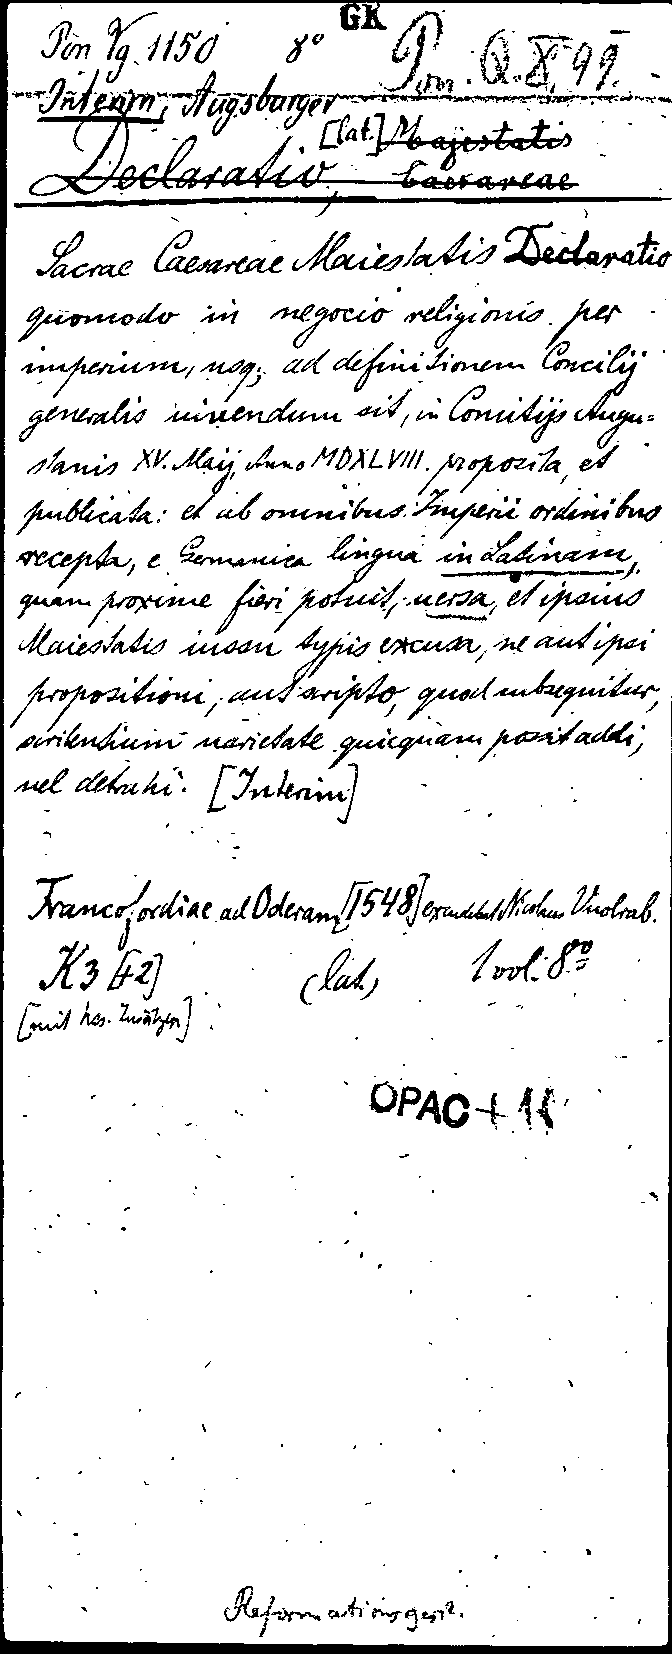 GK
Pon Vg. 1150 8° Pon. Q. X, 99.
Interim, Augsburger
[lat.] Majestatis
Declaratio, Caesareae
Sacrae Caesareae Maiestatis Declaratio
quomodo in negocio religionis per
imperium, usq; ad definitionem Concilij
generalis uiuendum sit, in Comitijs Augu=
stanis XV. Maij, Anno MDXLVIII. proposita, et
publicata: et ab omnibus Imperii ordinibus
recepta, e Germanica lingua in Latinam,
quam proxime fieri potuit, uersa, et ipsius
Maiestatis iussu typis excusa, ne aut ipsi
propositioni, aut scripto, quod subsequitur,
scribentium uarietate quicquam possit addi,
uel detrahi. [Interim]
Francofordiae ad Oderam [1548] excudebat Nicolaus Vuolrab.
K3 [42] (lat.) 1 vol. 8°
[mit hss. Zusätzen]
OPAC + 11
Reformationsgesch.